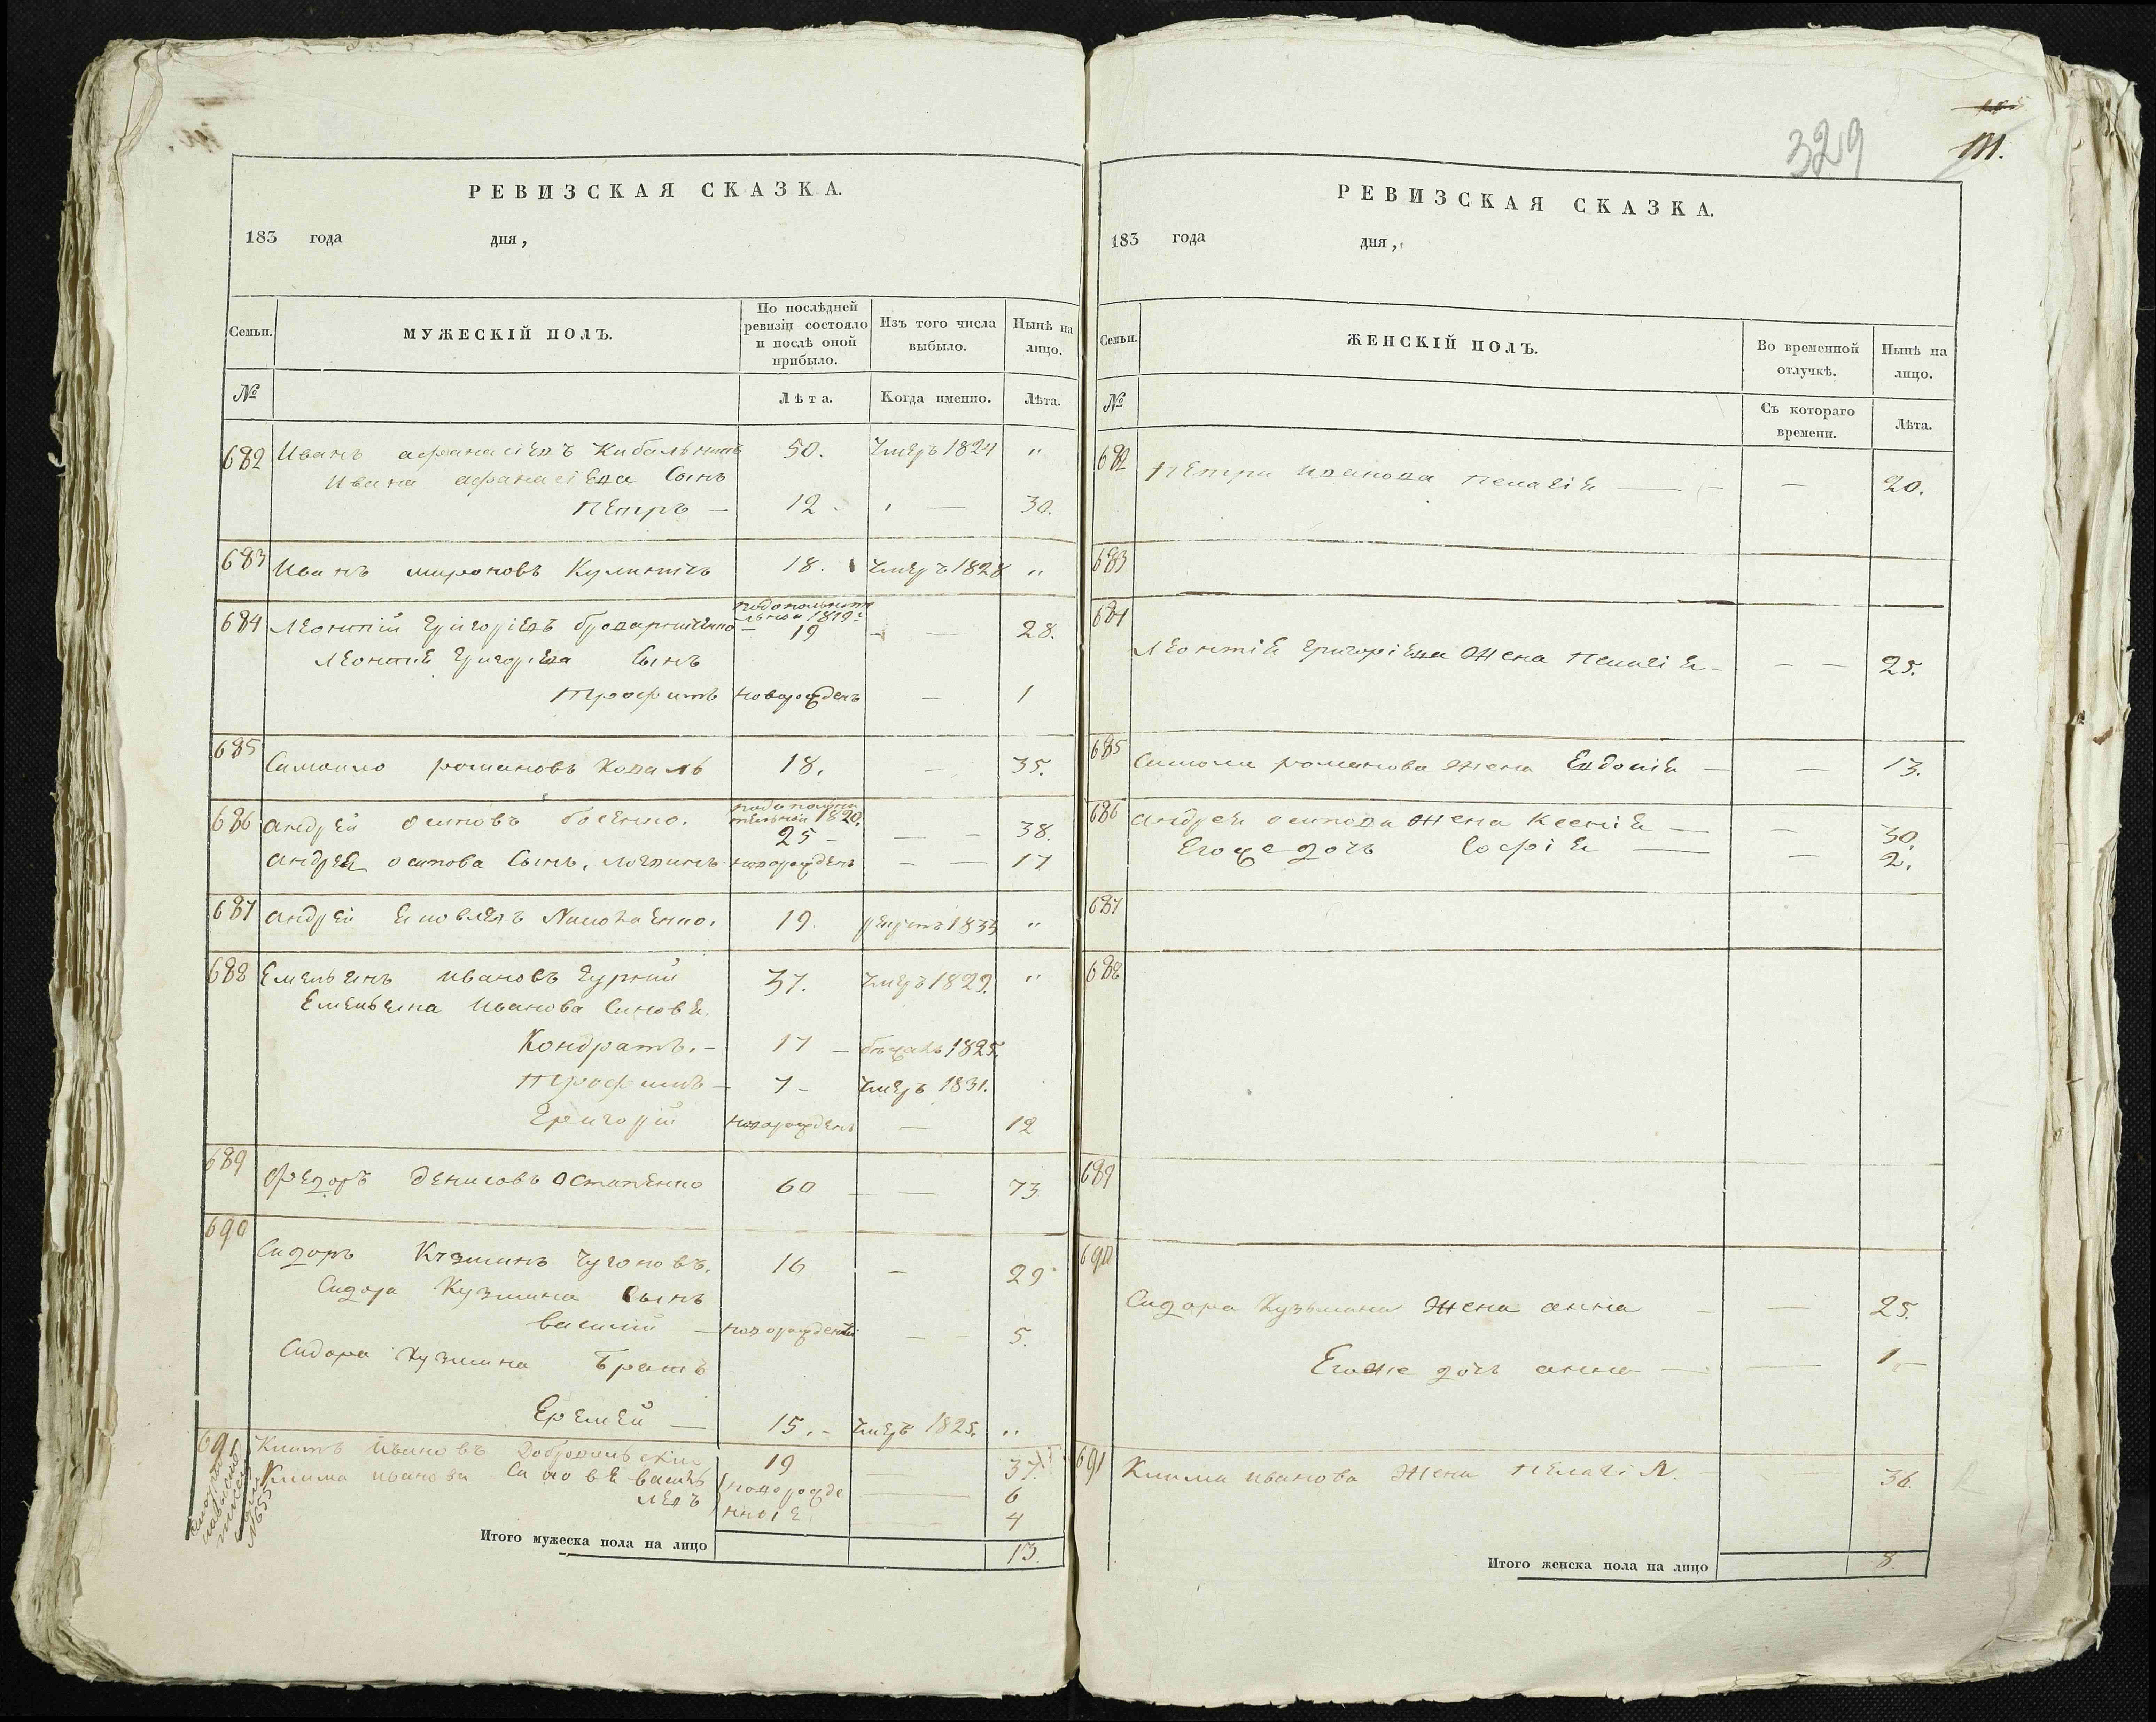 329
111.
РЕВИЗСКАЯ СКАЗКА.
183 года дня,
Семьи. МУЖЕСКІЙ ПОЛЪ. По послѣдней ревизіи состояло и послѣ оной прибыло. Изъ того числа выбыло. Нынѣ на лицо.
№ Лѣта. Когда именно. Лѣта.
682 Иванъ афанасіевъ Кибальникъ 50. Умеръ 1824 "
Ивана афанасіева Сынъ
Петръ — 12 — 30.
683 Иванъ мироновъ Куличичъ 18. Умеръ 1828 "
684 Леонтій Григоріевъ 19 — 28.
Леонтіе Григоріева Сынъ
Трофимъ новорожденъ — 1
685 Самойло романовъ Коваль 18. — 35.
686 андрей осиповъ 1820. 25 — 38.
андрея осипова Сынъ, логвинъ новорожденъ — 17
687 андрей 19. рекрутъ 1833 "
688 Емельянъ Ивановъ Гуркій 37. Умеръ 1829. "
Емельяна Иванова Синове.
Кондратъ. — 17 — бежалъ 1825.
Трофимъ — 7 — Умеръ 1831.
Григорій новорожденъ — 12
689 Федоръ Денисовъ Остапенко 60 — 73
690 Сидоръ Кузминъ Чугоновъ. 16 — 29
Сидора Кузмина Сынъ
Василій — новорожденій — 5.
Сидора Кузмина Братъ
Еремей — 15. — Умеръ 1825. "
691 Климъ Ивановъ 19 37.
Клима иванова Синове василь новорожде 6
левъ нніе 4
Итого мужеска пола на лицо 13.
РЕВИЗСКАЯ СКАЗКА.
183 года дня,
Семьи. ЖЕНСКІЙ ПОЛЪ. Во временной отлучкѣ. Нынѣ на лицо.
№ Съ котораго времени. Лѣта.
682 Петра иванова пелагіе — 20.
683
684
Леонтіе григоріева Жена Пелагіе — 25.
685 Самойла романова Жена Евдокіе — 13.
686 андрея осипова Жена Ксеніе — 30.
Егоже дочь Софіе — 2.
687
688
689
690
Сидора Кузьмина Жена анна — 25.
Егоже дочь анна — 1
691 Клима иванова Жена пелагія. 36.
Итого женска пола на лицо 8.